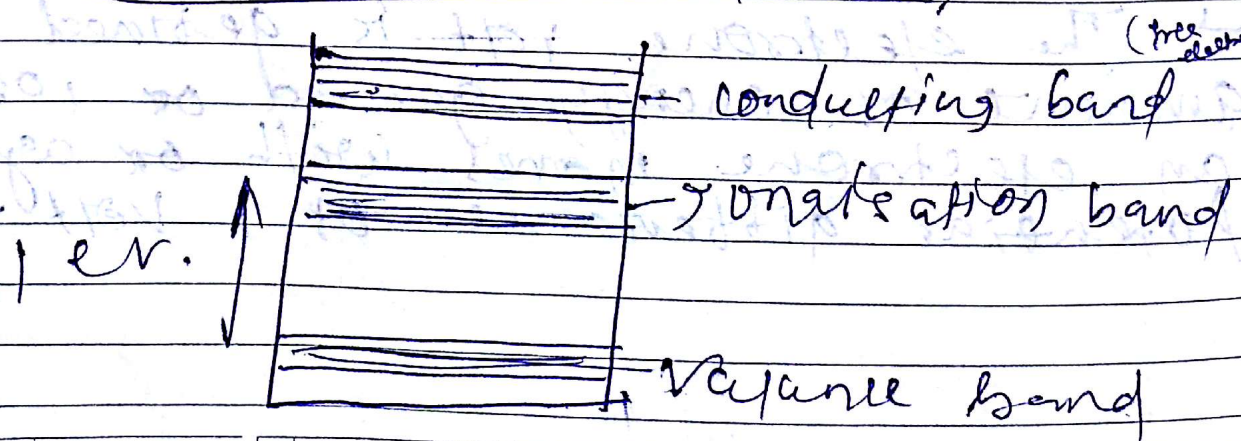 (free
conducting band
Ionaisation band
1 ev.
Valance band